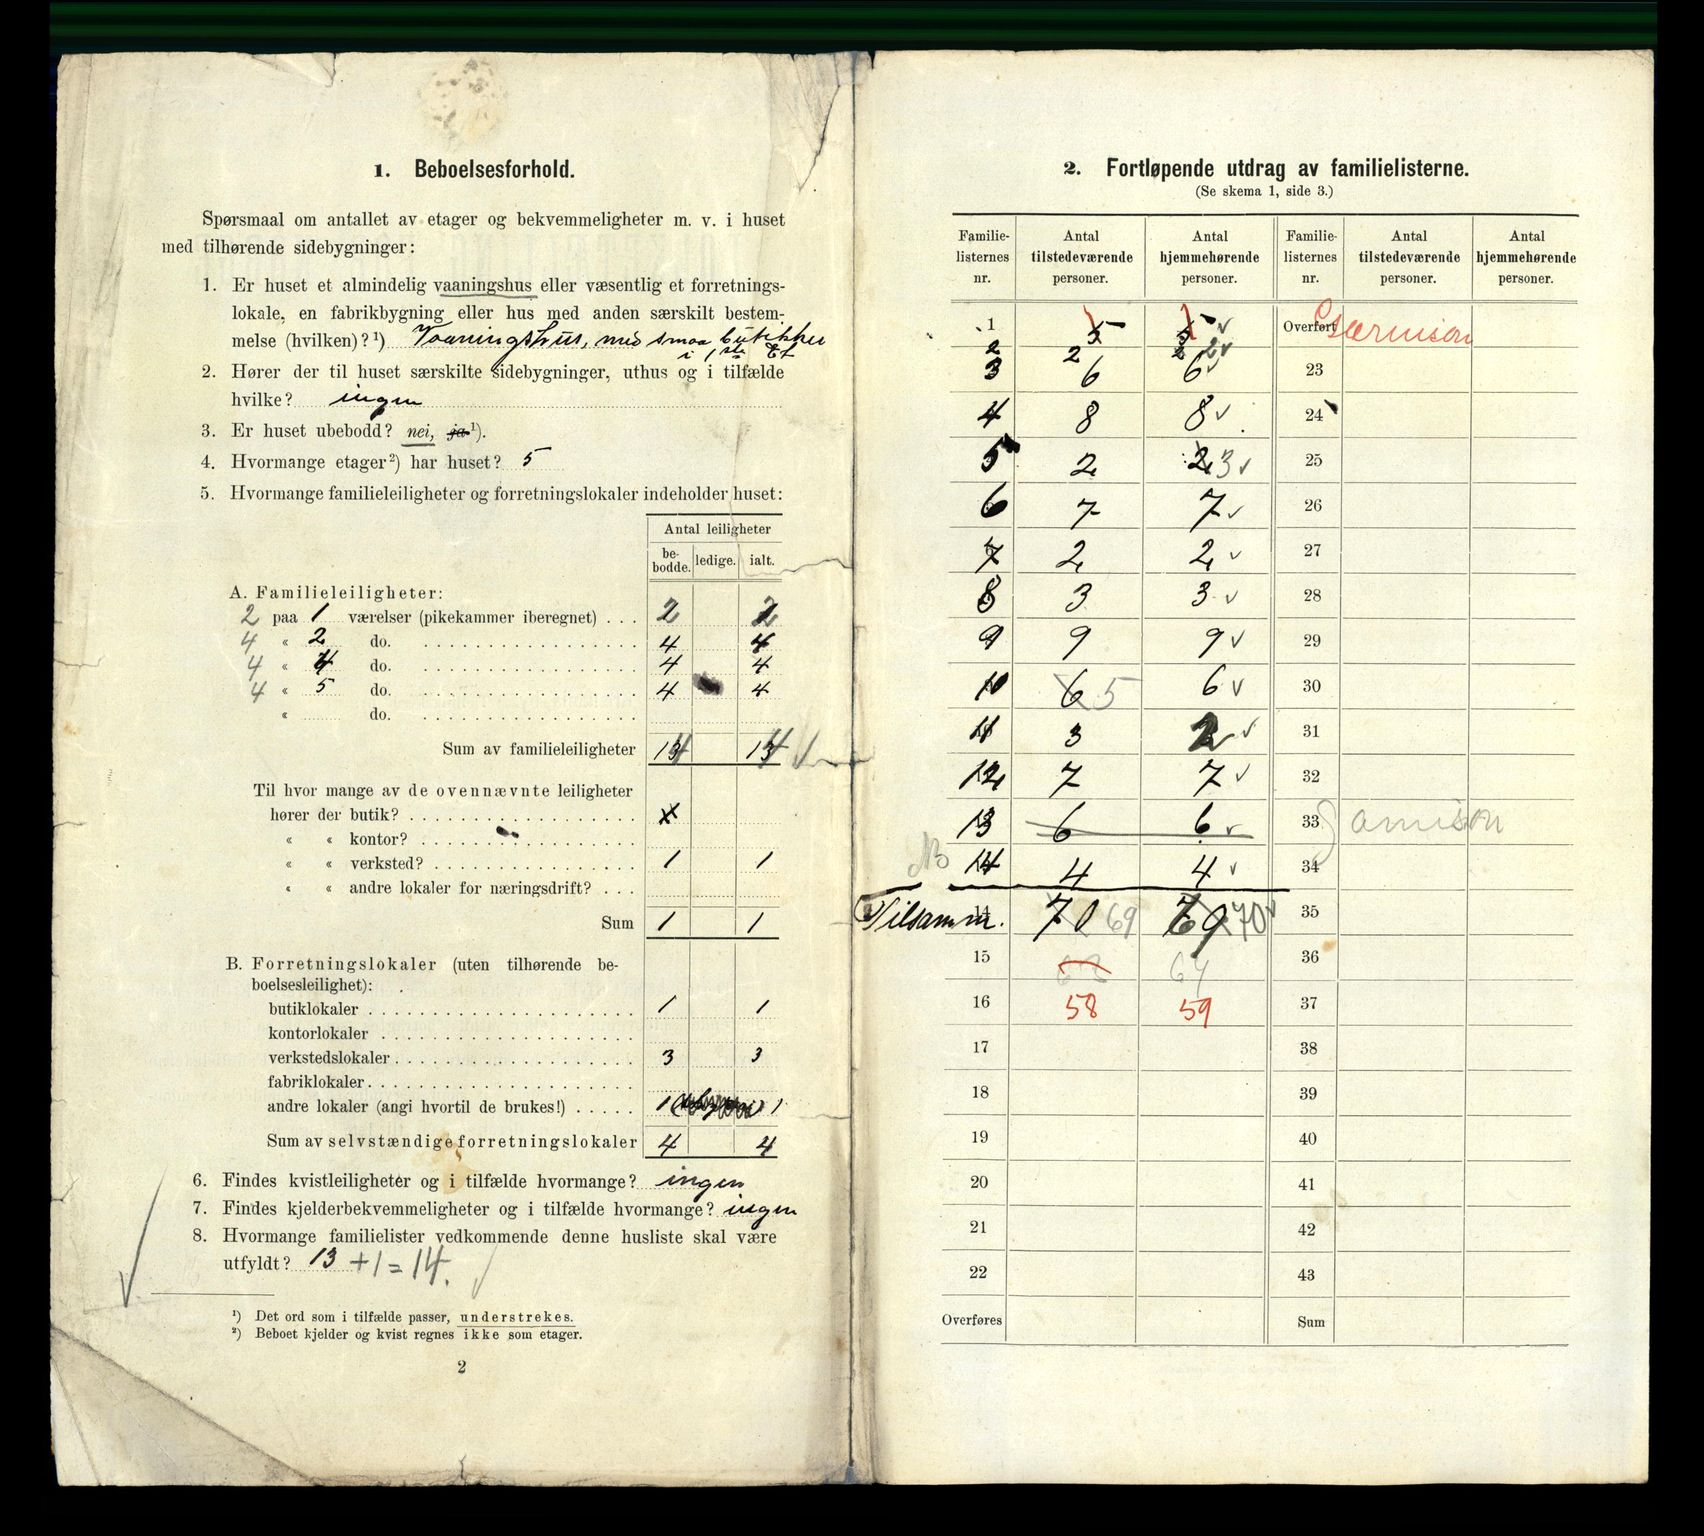 1. Beboelsesforhold.
Spørsmaal om antallet av etager og bekvemmeligheter m. v. i huset
med tilhørende sidebygninger:
1. Er huset et almindelig vaaningshus eller væsentlig et forretnings-
lokale, en fabrikbygning eller hus med anden særskilt bestem-
melse (hvilken)?¹) Vaaningshus, med smaa butikker
i 1ste Et
2. Hører der til huset særskilte sidebygninger, uthus og i tilfælde
hvilke? ingen
3. Er huset ubebodd? nei, ja¹).
4. Hvormange etager²) har huset? 5
5. Hvormange familieleiligheter og forretningslokaler indeholder huset:
Antal leiligheter
be-bodde. ledige. ialt.
A. Familieleiligheter:
2 paa 1 værelser (pikekammer iberegnet) . . . 2 2
4 « 2 do. 4 4
4 « 4 do. 4 4
4 « 5 do. 4 4
« do.
Sum av familieleiligheter 14 14
Til hvor mange av de ovennævnte leiligheter
hører der butik?
« « kontor?
« « verksted? 1 1
« « andre lokaler for næringsdrift? . . .
Sum 1 1
B. Forretningslokaler (uten tilhørende be-
boelsesleilighet):
butiklokaler 1 1
kontorlokaler
verkstedslokaler 3 3
fabriklokaler
andre lokaler (angi hvortil de brukes!) 1 1
Sum av selvstændige forretningslokaler 4 4
6. Findes kvistleiligheter og i tilfælde hvormange? ingen
7. Findes kjelderbekvemmeligheter og i tilfælde hvormange? ingen
8. Hvormange familielister vedkommende denne husliste skal være
utfyldt? 13 + 1 = 14.
¹) Det ord som i tilfælde passer, understrekes.
²) Beboet kjelder og kvist regnes ikke som etager.
2
2. Fortløpende utdrag av familielisterne.
(Se skema 1, side 3.)
Familie-listernes nr. Antal tilstedeværende personer. Antal hjemmehørende personer. Familie-listernes nr. Antal tilstedeværende personer. Antal hjemmehørende personer.
1 5 5 Overført
2 2 2
3 6 6 23
4 8 8 24
5 2 2 3 25
6 7 7 26
7 2 2 27
8 3 3 28
9 9 9 29
10 6 5 6 30
11 3 2 31
12 7 7 32
13 6 6 33
14 4 4 34
Tilsamm. 70 69 69 70 35
15 64 36
16 58 59 37
17 38
18 39
19 40
20 41
21 42
22 43
Overføres Sum